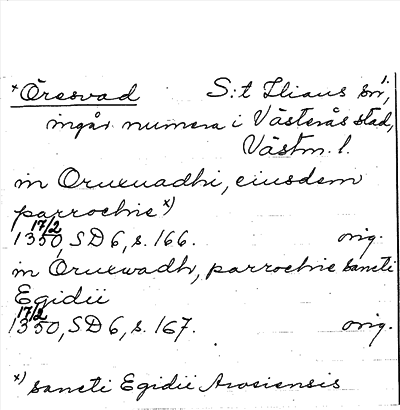 *Öresvad S:t Ilians sn,
ingår numera i Västerås stad,
Västm. l.
in Oruxuadhi, eiusdem
parrochie x)
17/2
1350, SD 6, s. 166. orig.
in Oruxwadh, parrochie sancti
Egidii
17/2
1350, SD 6, s. 167. orig.
x) sancti Egidii Arosiensis